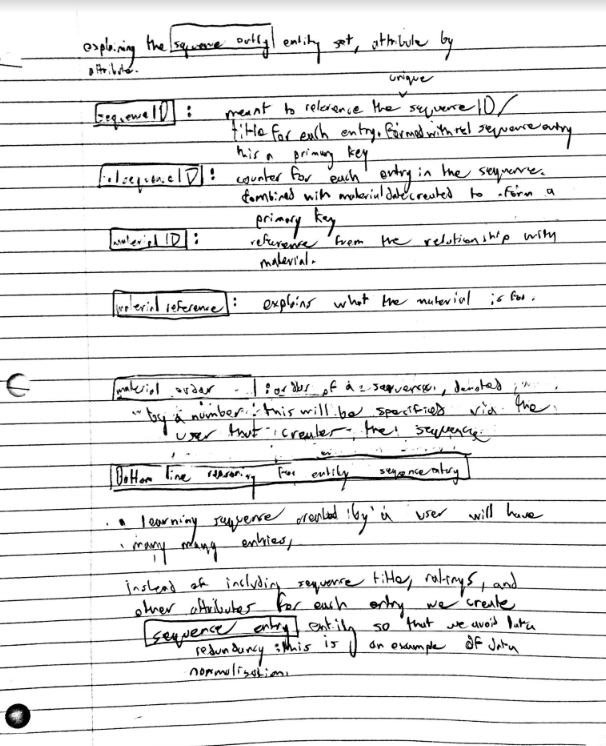 explaining the sequence entry entity set, attribute by
attribute.
unique
sequenceID : meant to reference the sequence ID/
title for each entry. Formed with rel sequence entry
this a primary key
relsequenceID : counter for each entry in the sequence.
combined with material date created to form a
primary key
material ID : reference from the relationship with
material.
material reference : explains what the material is for.
material order : order of a sequence, denoted
by a number. this will be specified via the
user that creates the sequence
Bottom line reasoning for entity sequence entry
a learning sequence created by a user will have
many many entries,
instead of including sequence title, ratings, and
other attributes for each entry we create
sequence entry entity so that we avoid data
redundancy : this is an example of data
normalisation.